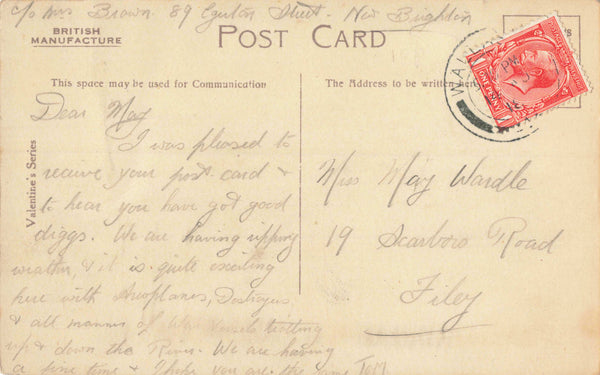 c/o Mrs Brown. 89 Egerton Street. New Brighton
BRITISH
MANUFACTURE
POST CARD
This space may be used for Communication
The Address to be written here
Valentine's Series
WALL
PM
ONE PENNY
Dear May
I was pleased to
receive your post card &
to hear you have got good
diggs. We are having ripping
weather, & it is quite exciting
here with Aeroplanes, Destroyers
& all manner of War Vessels trotting
up & down the River. We are having
a fine time & I hope you are the same Tom
Miss May Wardle
19 Scarboro Road
Filey